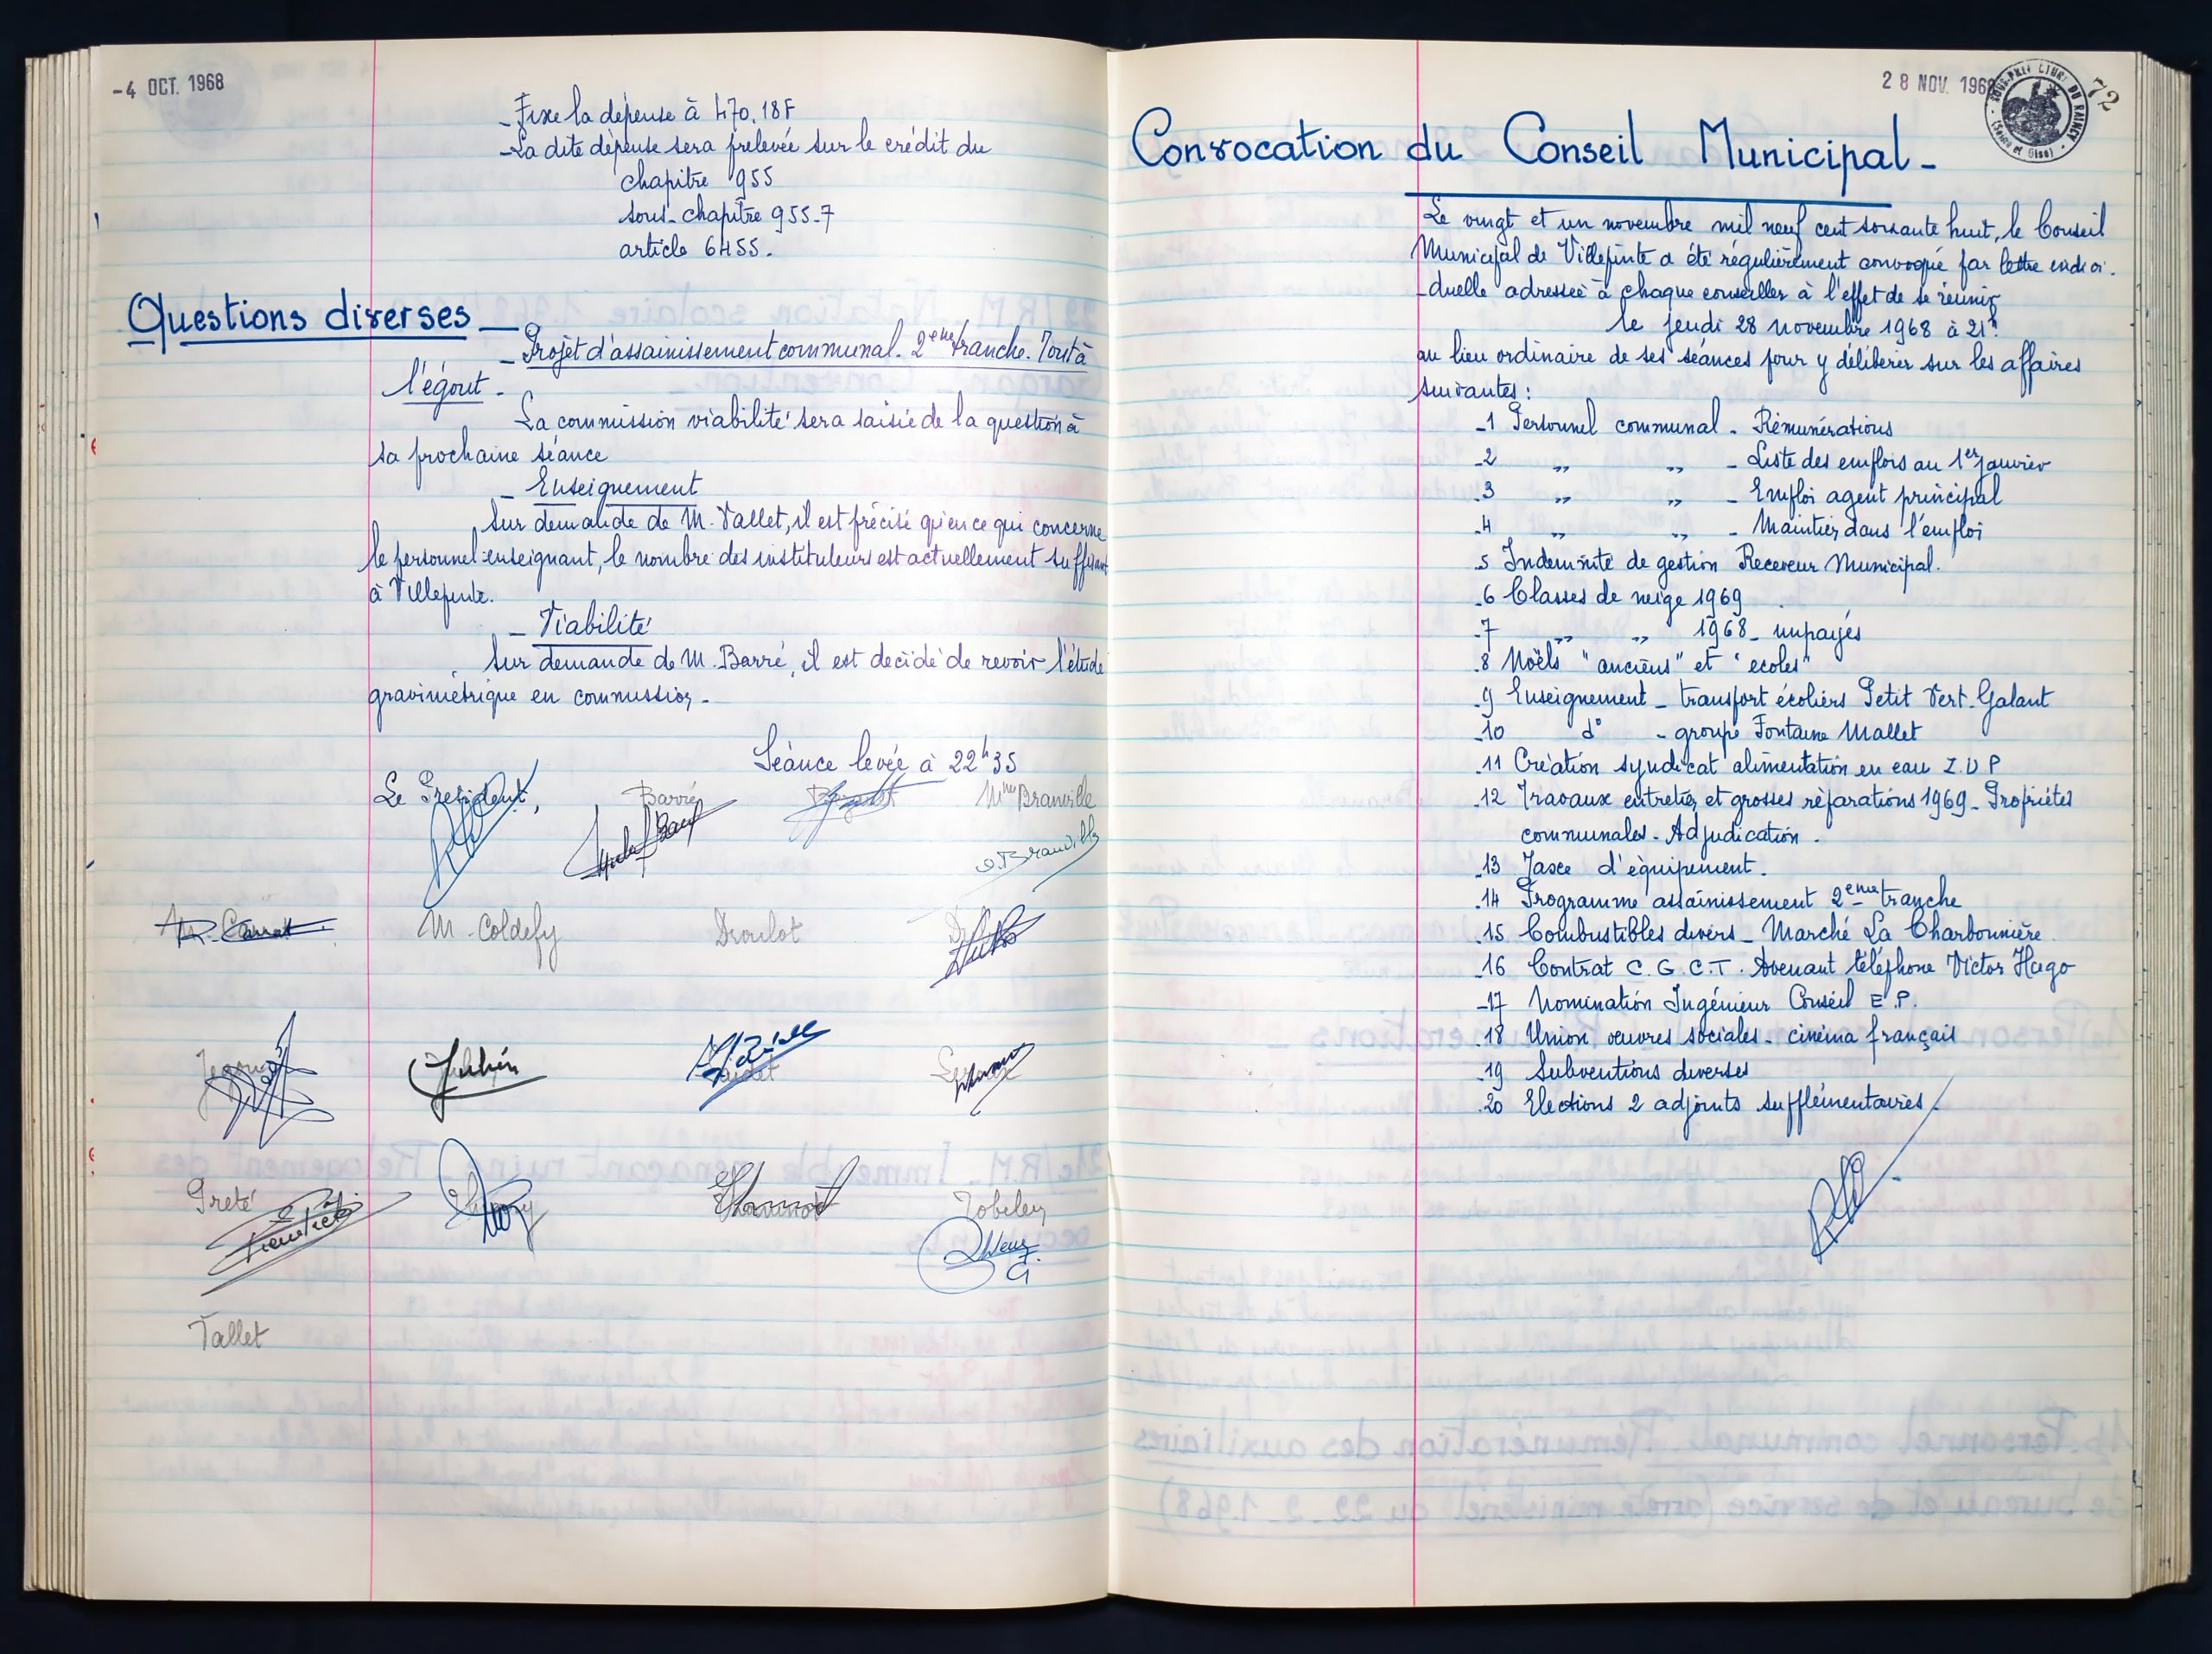 -4 OCT. 1968
- Fixe la dépense à 470,18F
- La dite dépense sera prélevée sur le crédit du
chapitre 955
sous-chapitre 955-7
article 6455.
Questions diverses -
- Projet d'assainissement communal. 2eme tranche. Tout à
l'égout -
La commission viabilité sera saisie de la question à
sa prochaine séance
- Enseignement
Sur demande de M. Vallet, il est précisé qu'en ce qui concerne
le personnel enseignant, le nombre des instituteurs est actuellement suffisant
à Villepinte.
- Viabilité
Sur demande de M. Barré, il est décidé de revoir l'étude
gravimétrique en commission -
Séance levée à 22h35
Le President,
Barré
Mme Branville
M. Coldefy
Droulot
Julien
Preté
Tobeley
Vallet
28 NOV. 1968
SOUS-PREFECTURE DU RAINCY
(Seine et Oise)
72
Convocation du Conseil Municipal -
Le vingt et un novembre mil neuf cent soixante huit, le Conseil
Municipal de Villepinte a été régulièrement convoqué par lettre indivi-
-duelle adressée à chaque conseiller à l'effet de se réunir
le jeudi 28 novembre 1968 à 21h
au lieu ordinaire de ses séances pour y délibérer sur les affaires
suivantes :
-1 Personnel communal - Rémunérations
-2 " " - Liste des emplois au 1er janvier
-3 " " - Emploi agent principal
-4 " " - Maintien dans l'emploi
-5 Indemnité de gestion Receveur Municipal.
-6 Classes de neige 1969
-7 " " 1968 - impayés
-8 Noëls "anciens" et "ecoles"
-9 Enseignement - transport écoliers Petit Vert-Galant
-10 d° - groupe Fontaine Mallet
-11 Création syndicat alimentation en eau Z.U.P
-12 Travaux entretien et grosses réparations 1969 - Propriétés
communales - Adjudication.
-13 Taxe d'équipement.
-14 Programme assainissement 2eme tranche
-15 Combustibles divers - Marché La Charbonnière
-16 Contrat C.G.C.T. Avenant téléphone Victor Hugo
-17 Nomination Ingénieur Conseil E.P.
-18 Union oeuvres sociales - cinéma français
-19 Subventions diverses
-20 Elections 2 adjoints supplémentaires.